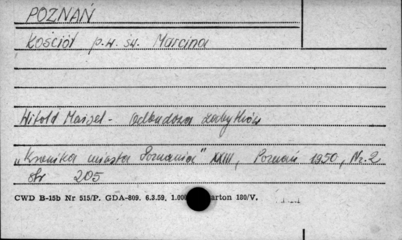 POZNAŃ
Kościół p.w. św. Marcina
Witold Maisel - Odbudowa zabytków
"Kronika miasta Poznania" XXIII, Poznań 1950, Nr. 2
str 205
CWD B-15b Nr 515/P. GDA-809. 6.3.59, 1.000 karton 180/V.